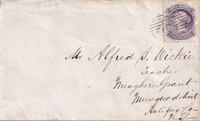 Mr Alfred B. Dickie
Teacher
Meagher's Grant
Musquodoboit
Halifax Co.
N.S.